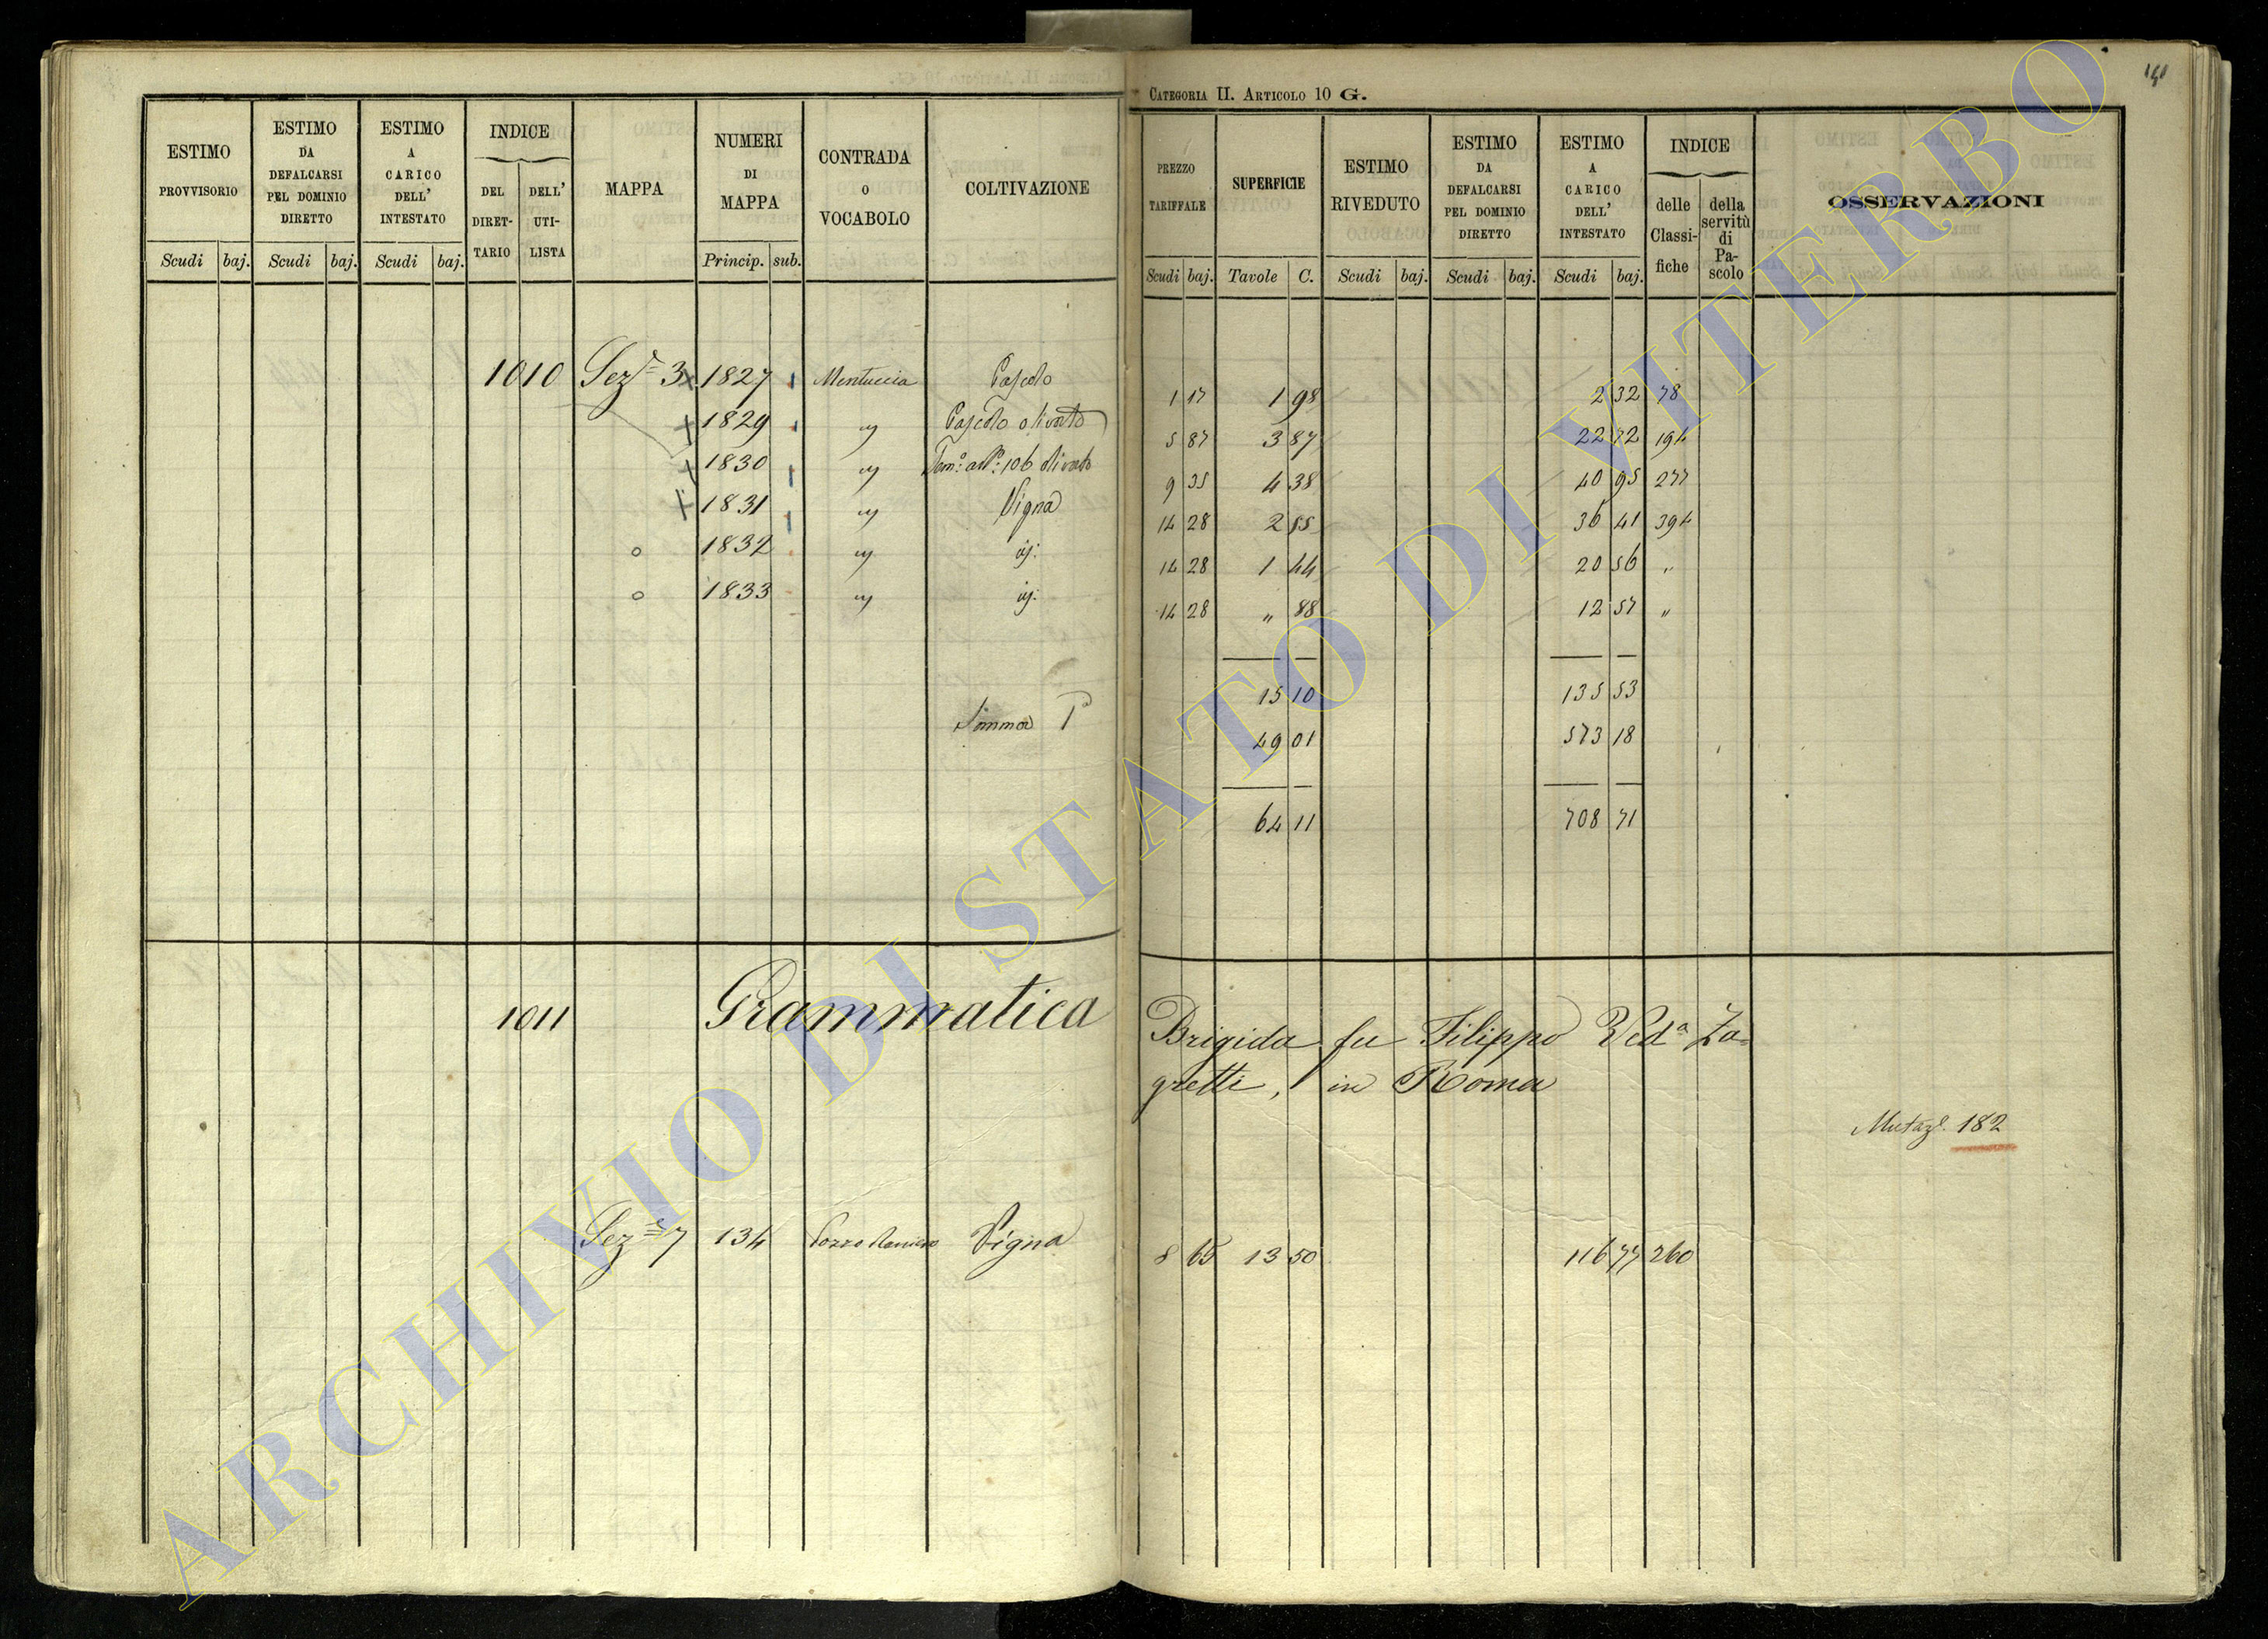 141
CATEGORIA II. ARTICOLO 10 G.
ESTIMO PROVVISORIO Scudi baj.
ESTIMO DA DEFALCARSI PEL DOMINIO DIRETTO Scudi baj.
ESTIMO A CARICO DELL' INTESTATO Scudi baj.
INDICE DEL DIRET-TARIO DELL' UTI-LISTA
MAPPA
NUMERI DI MAPPA Princip. sub.
CONTRADA O VOCABOLO
COLTIVAZIONE
PREZZO TARIFFALE Scudi baj.
SUPERFICIE Tavole C.
ESTIMO RIVEDUTO Scudi baj.
ESTIMO DA DEFALCARSI PEL DOMINIO DIRETTO Scudi baj.
ESTIMO A CARICO DELL' INTESTATO Scudi baj.
INDICE delle Classi-fiche della servitù di Pa-scolo
OSSERVAZIONI
1010 Sez.e 3 x 1827 Mentuccia Pascolo 1 17 1 98 2 32 78
+ 1829 " Pascolo olivato 5 87 3 87 22 72 194
+ 1830 " olivato 9 35 4 38 40 95 277
+ 1831 " Vigna 14 28 2 55 36 41 394
o 1832 " id: 14 28 1 44 20 56 "
o 1833 " id: 14 28 " 88 12 57 "
15 10 135 53
Somma P 49 01 573 18
64 11 708 71
1011 Grammatica Brigida fu Filippo Ved.a Za=
gretti, in Roma
Mutaz.e 182
Sez.e 7 134 Vigna 8 65 13 50 116 77 260
ARCHIVIO DI STATO DI VITERBO